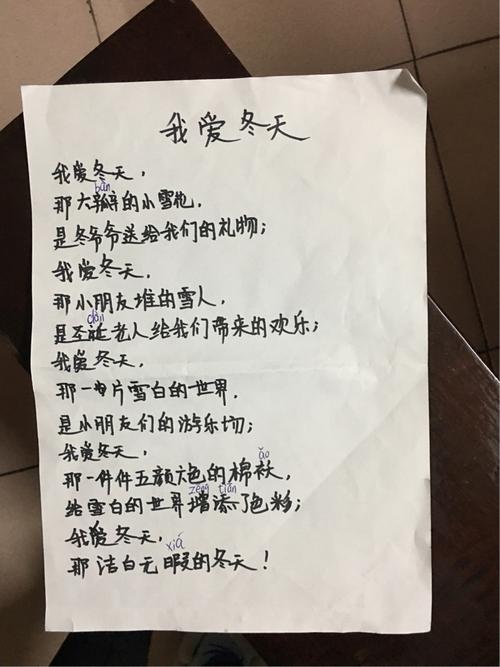 我爱冬天
我爱冬天，
bàn
那大瓣的小雪花，
是冬爷爷送给我们的礼物；
我爱冬天，
那小朋友堆的雪人，
dàn
是圣诞老人给我们带来的欢乐；
我爱冬天，
那一片雪白的世界，
是小朋友们的游乐场；
我爱冬天，
ǎo
那一件件五颜六色的棉袄，
zēng tiān
给雪白的世界增添了色彩；
我爱冬天，
xiá
那洁白无暇的冬天！